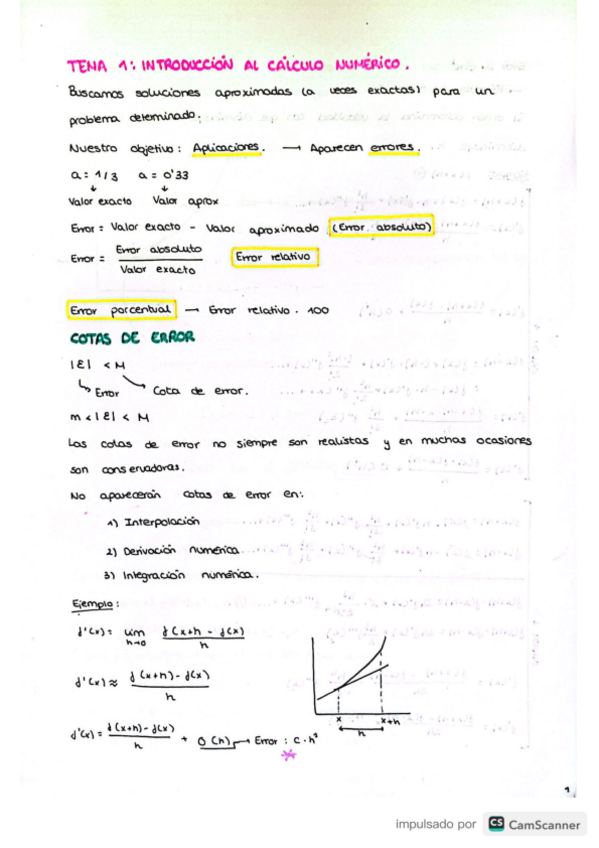 TEMA 1: INTRODUCCIÓN AL CÁLCULO NUMÉRICO.
Buscamos soluciones aproximadas (a veces exactas) para un
problema determinado.
Nuestro objetivo: Aplicaciones. → Aparecen errores.
a = 1/3 a = 0'33
↓ ↓
Valor exacto Valor aprox
Error = Valor exacto - Valor aproximado (Error absoluto)
Error = Error absoluto / Valor exacto Error relativo
Error porcentual → Error relativo · 100
COTAS DE ERROR
|ε| < M
Error Cota de error.
m < |ε| < M
Las cotas de error no siempre son realistas y en muchas ocasiones
son conservadoras.
No aparecerán cotas de error en:
1) Interpolación
2) Derivación numérica
3) Integración numérica.
Ejemplo:
f'(x) = lim h→0 f(x+h - f(x) / h
f'(x) ≈ f(x+h) - f(x) / h
x x+h
h
f'(x) = f(x+h) - f(x) / h + O(h) → Error: c·h¹
*
1
impulsado por CS CamScanner